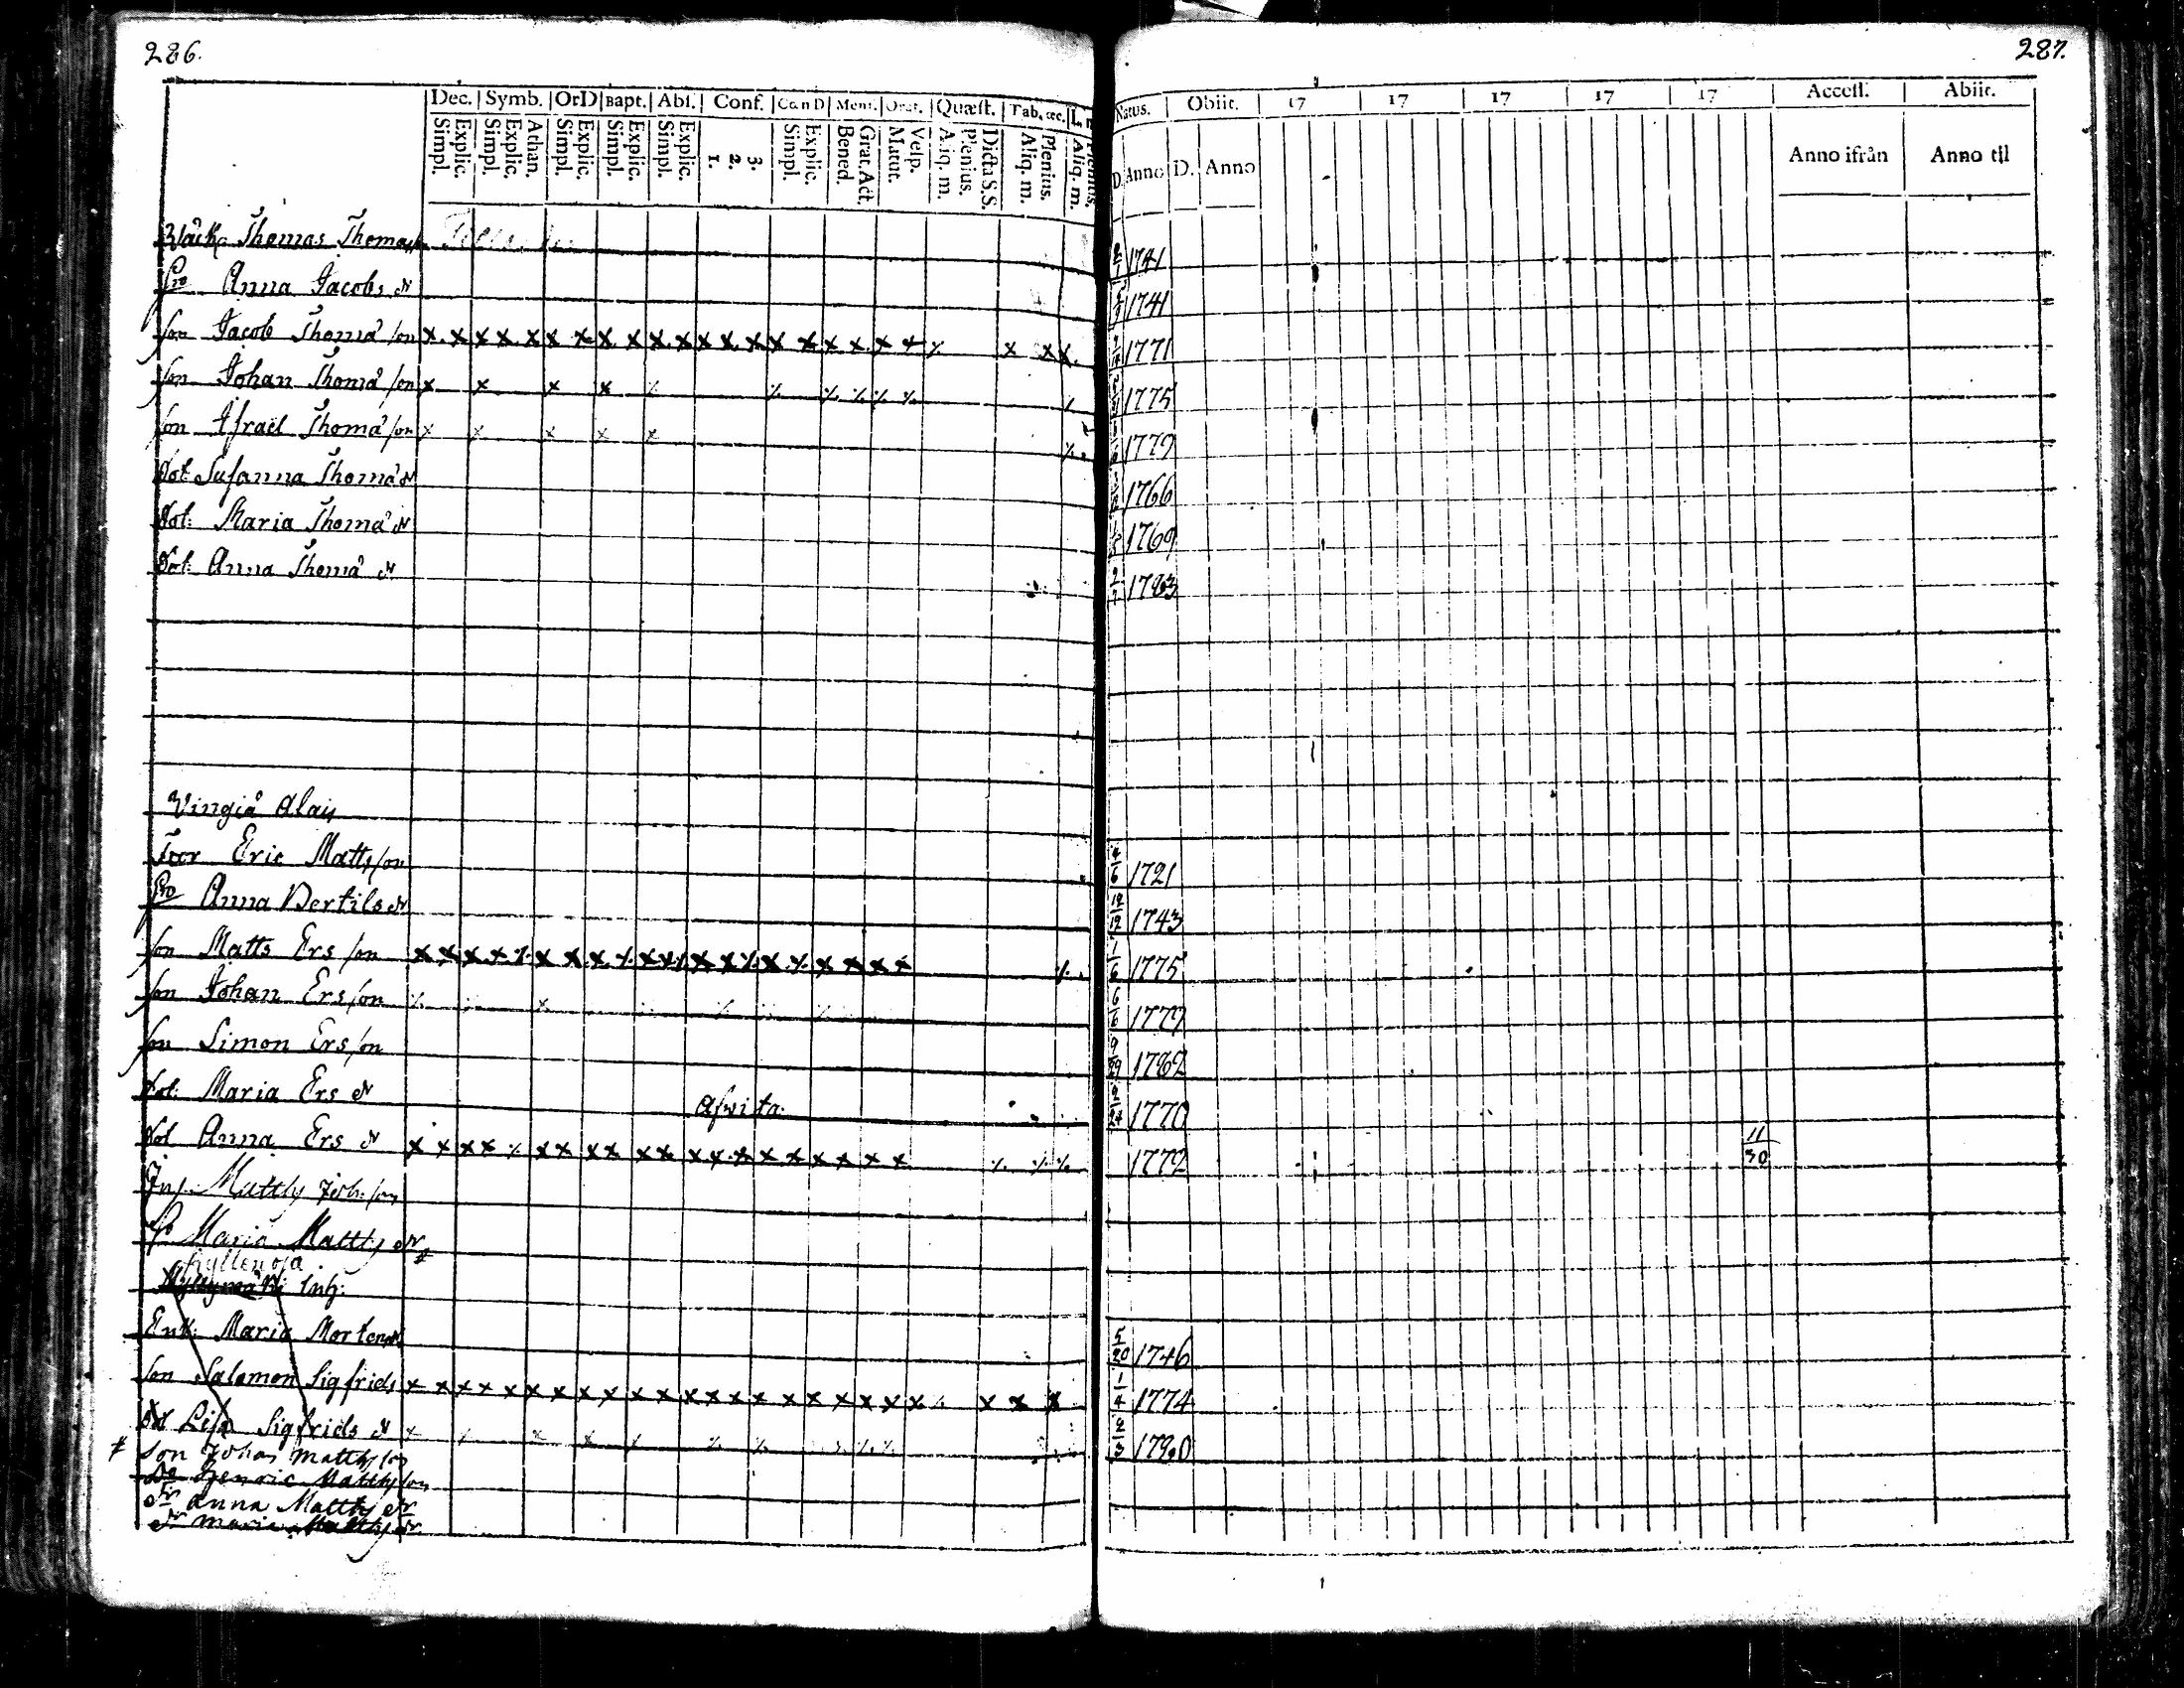 286.
287.
Dec. Symb. OrD Bapt. Abs. Conf. Cœn D Mens. Orat. Quæst. Tab. œc.
Simpl. Explic. Simpl. Explic. Athan. Simpl. Explic. Simpl. Explic. Simpl. Explic. 1. 2. 3. Simpl. Explic. Bened. Grat. Act. Matut. Vesp. Aliq. m. Plenius. Dicta S.S. Aliq. m. Plenius. Aliq. m. Plenius.
Natus. Obiit. 17 17 17 17 17 Access. Abiit.
D. Anno D. Anno Anno ifrån Anno til
Thomas Thomass. 1741
Anna Jacobs dr 1741
son Jacob Thomæ son 1771
son Johan Thomæ son 1775
son Israël Thomæ son 1779
dot Susanna Thomæ dr 1766
dot: Maria Thomæ dr 1769
dot: Anna Thomæ dr 1783
Vingiå
Eric Matts son 4/6 1721
Anna Bertils dr 1743
son Matts Ers son 1775
son Johan Ers son 6/6 1777
son Simon Ers son 1782
dot: Maria Ers dr 1770
dot Anna Ers dr 1772 11/30
Matths Joh: son
Maria Matths dr #
Kyllenoja
Inh:
Enk: Maria Mortens dr 5/20 1746
son Salomon Sigfrids 1/4 1774
dot Lisa Sigfrids dr 1780
# son Johan Matths son
Do Henric Matths son
dr Anna Matths dr
dr Maria Matths dr